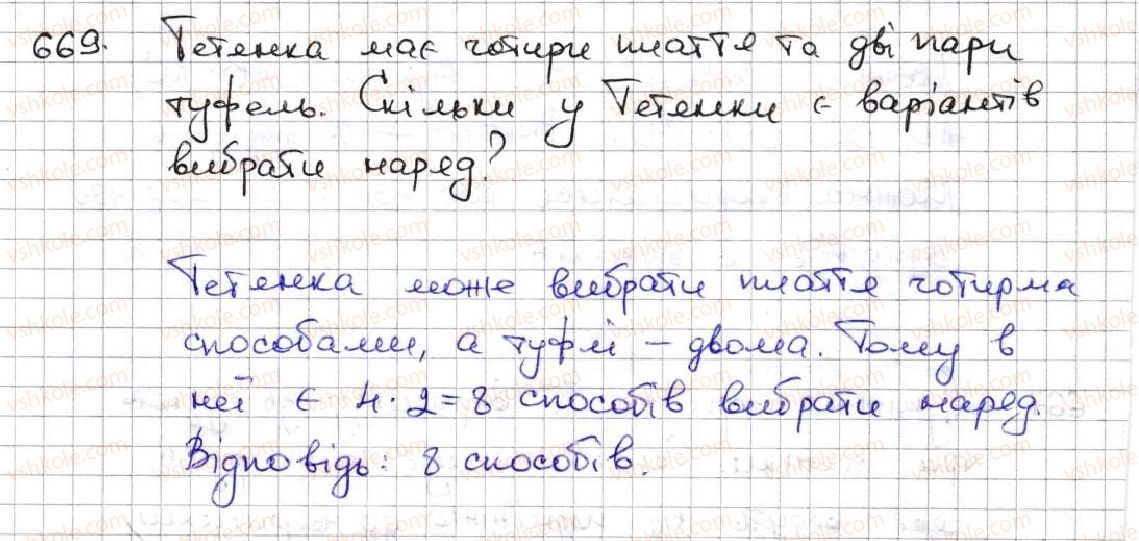 669. Тетянка має чотири плаття та дві пари
туфель. Скільки у Тетянки є варіантів
вибрати наряд?
Тетянка може вибрати плаття чотирма
способами, а туфлі – двома. Тому в
неї є 4 · 2 = 8 способів вибрати наряд.
Відповідь: 8 способів.